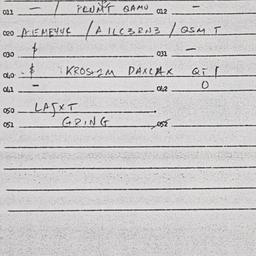 011 — / PRUNT QAMU 012 —
020 AIEMEYUC / AILC3RN3 / QSM T
030 $ 031 —
040 - $ KROS DAXCAX QT
041 — 042 0
050 LAJXT
051 GRING 052